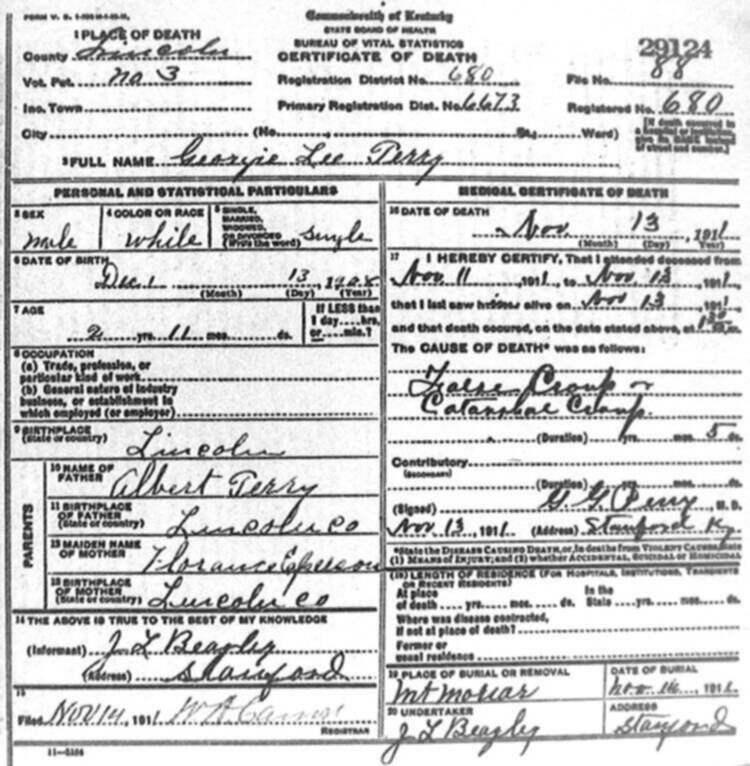 FORM V. S.
Commonwealth of Kentucky
STATE BOARD OF HEALTH
BUREAU OF VITAL STATISTICS
CERTIFICATE OF DEATH
29124
1 PLACE OF DEATH
County Lincoln
Vot. Pct. No 3
Registration District No. 680
File No. 88
Inc. Town
Primary Registration Dist. No. 6673
Registered No. 680
City (No. St.; Ward)
[If death occurred in a hospital or institution, give its NAME instead of street and number.]
2 FULL NAME Georgie Lee Perry
PERSONAL AND STATISTICAL PARTICULARS
3 SEX
male
4 COLOR OR RACE
white
5 SINGLE, MARRIED, WIDOWED, OR DIVORCED (Write the word) single
6 DATE OF BIRTH
Dec 13 1908
(Month) (Day) (Year)
7 AGE
2 yrs. 11 mos. ds.
If LESS than 1 day hrs. or min.?
8 OCCUPATION
(a) Trade, profession, or particular kind of work
(b) General nature of industry business, or establishment in which employed (or employer)
9 BIRTHPLACE
(State or country) Lincoln
PARENTS
10 NAME OF FATHER Albert Perry
11 BIRTHPLACE OF FATHER (State or country) Lincoln co
12 MAIDEN NAME OF MOTHER Florance Epperson
13 BIRTHPLACE OF MOTHER (State or country) Lincoln co
14 THE ABOVE IS TRUE TO THE BEST OF MY KNOWLEDGE
(Informant) J L Beazley
(Address) Stanford
15
Filed NOV 14, 1911
REGISTRAR
11-3184
MEDICAL CERTIFICATE OF DEATH
16 DATE OF DEATH
Nov 13, 1911
(Month) (Day) (Year)
17 I HEREBY CERTIFY, That I attended deceased from
Nov 11, 1911, to Nov 13, 1911
that I last saw him alive on Nov 13, 1911
and that death occured, on the date stated above, at 1:30 m.
The CAUSE OF DEATH* was as follows:
False Croup or
Catarrhal Croup.
(Duration) yrs. mos. 5 ds.
Contributory
(SECONDARY)
(Duration) yrs. mos. ds.
(Signed) G. G. Perry, M. D.
Nov 13, 1911. (Address) Stanford Ky
*State the DISEASE CAUSING DEATH, or, in deaths from VIOLENT CAUSES, state (1) MEANS OF INJURY; and (2) whether ACCIDENTAL, SUICIDAL or HOMICIDAL
18 LENGTH OF RESIDENCE (FOR HOSPITALS, INSTITUTIONS, TRANSIENTS OR RECENT RESIDENTS)
At place of death yrs. mos. ds. In the State yrs. mos. ds.
Where was disease contracted, if not at place of death?
Former or usual residence
19 PLACE OF BURIAL OR REMOVAL
Mt moriar
DATE OF BURIAL
Nov 14, 1911
20 UNDERTAKER
J L Beazley
ADDRESS
Stanford